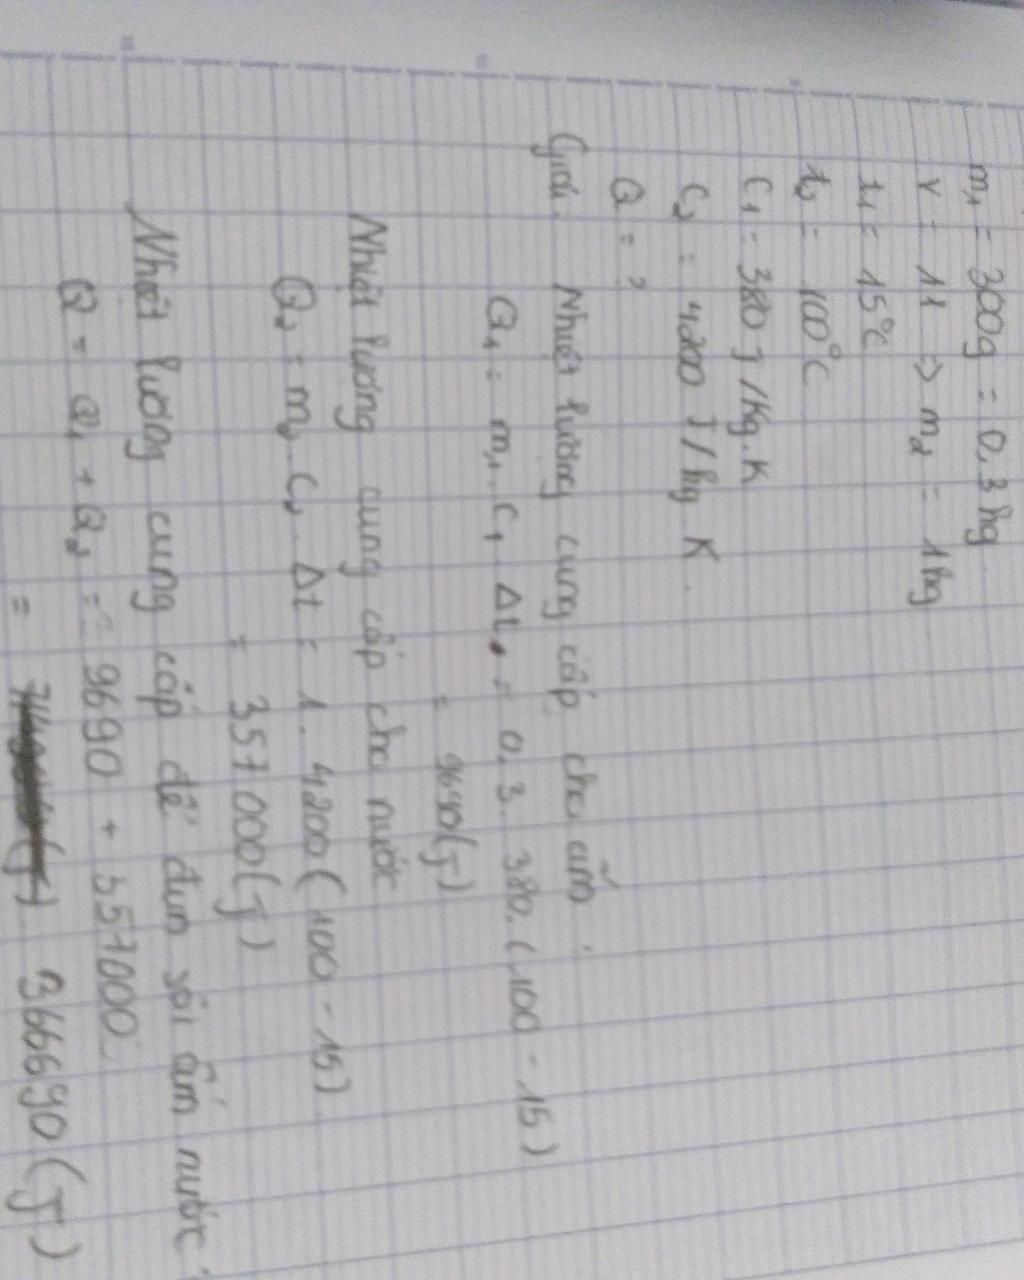 m₁ = 300g = 0,3 kg
V = 1l => m₂ = 1kg
t₁ = 15°C
t₂ = 100°C
C₁ = 380 J/Kg.K
C₂ = 4200 J/kg K.
Q = ?
Giải. Nhiệt lường cung cấp cho ấm:
Q₁ = m₁.C₁.Δt = 0,3. 380.(100 - 15)
= 9690(J)
Nhiệt lường cung cấp cho nước
Q₂ = m₂.C₂.Δt = 1. 4200(100 - 15)
= 357000(J)
Nhiệt lường cung cấp để đun sôi ấm nước.
Q = Q₁ + Q₂ = 9690 + 357000
= 366690(J)